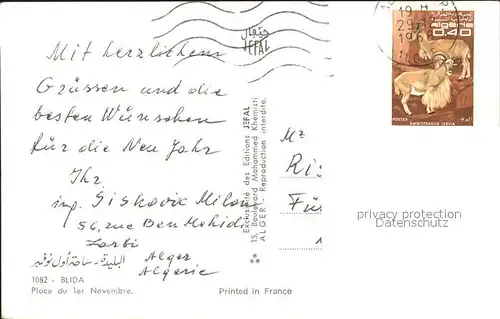 Mit herzlichem
Grüssen und die
besten Wünschen
für die Neu Jahr
Ihr
ing. Siskovic Milan
56, rue Ben Mehidi
Larbi
Alger
Algerie
البليدة - ساحة أول نوفمبر
1082 - BLIDA
Place du 1er Novembre.
Printed in France
جيفال
JEFAL
Exclusivité des Editions JEFAL
15, Boulevard Mohammed Khémisti
ALGER - Reproduction interdite.
Mz
Ri
Fü
19 H
29
0,40
POSTES
AMMOTRAGUS LERVIA
privacy protection
Datenschutz